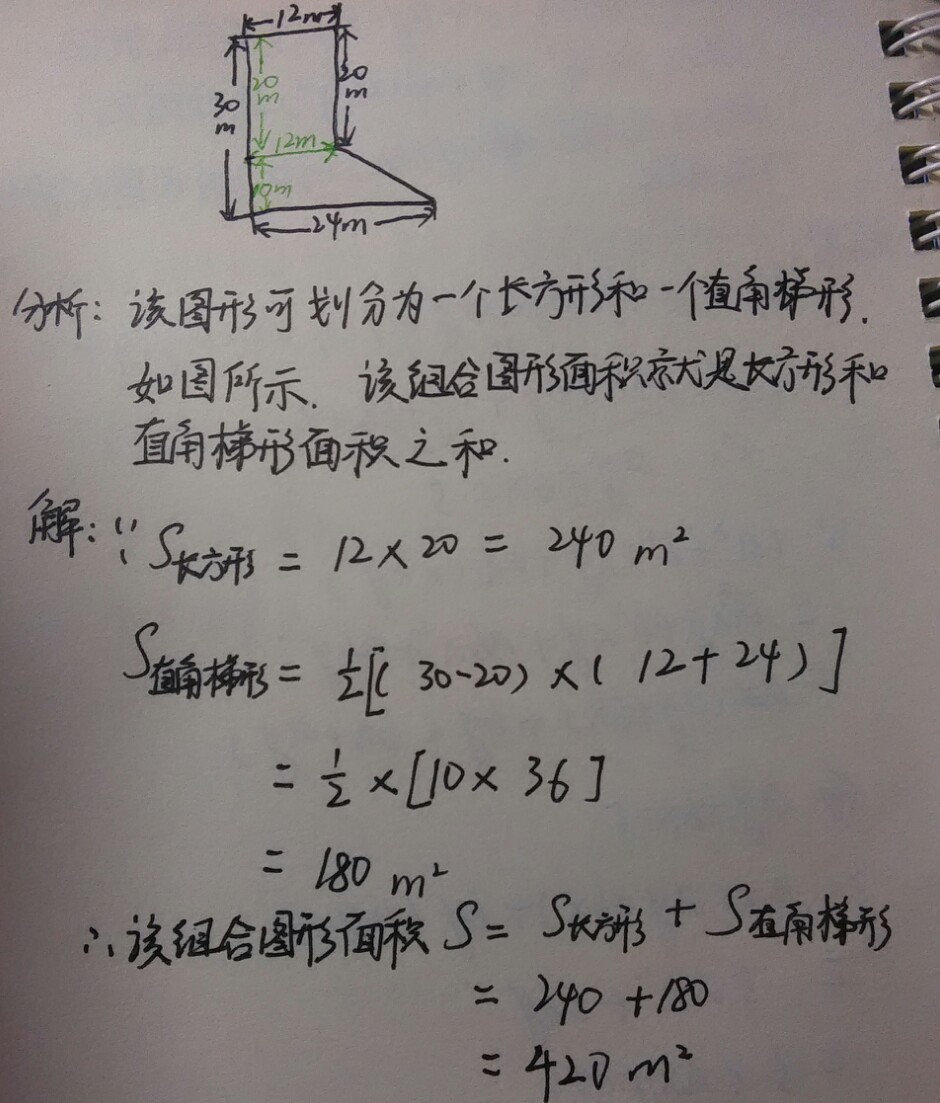 12m
20m
20m
30m
12m
10m
24m
分析: 该图形可划分为一个长方形和一个直角梯形.
如图所示. 该组合图形面积就是长方形和
直角梯形面积之和.
解: ∵ S长方形 = 12×20 = 240 m²
S直角梯形 = ½[(30-20)×(12+24)]
= ½×[10×36]
= 180 m²
∴该组合图形面积 S = S长方形 + S直角梯形
= 240 +180
= 420 m²